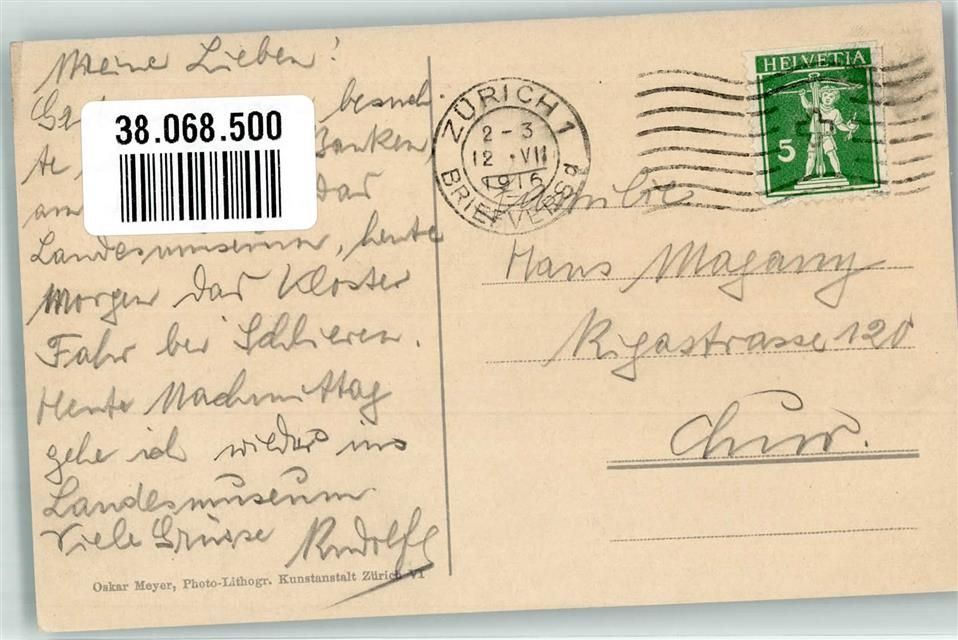 Meine Lieben!
besuch-
te Banken,
am das
Landesmuseum, heute
Morgen das Kloster
Fahr bei Schlieren.
Heute Nachmittag
gehe ich wieder ins
Landesmuseum.
Viele Grüsse Rudolf
Oskar Meyer, Photo-Lithogr. Kunstanstalt Zürich VI
38.068.500
ZÜRICH 1
2-3
12.VII
1916
BRIEFVERSD
HELVETIA
5
Familie
Hans Magany
Rigastrasse 120
Chur.